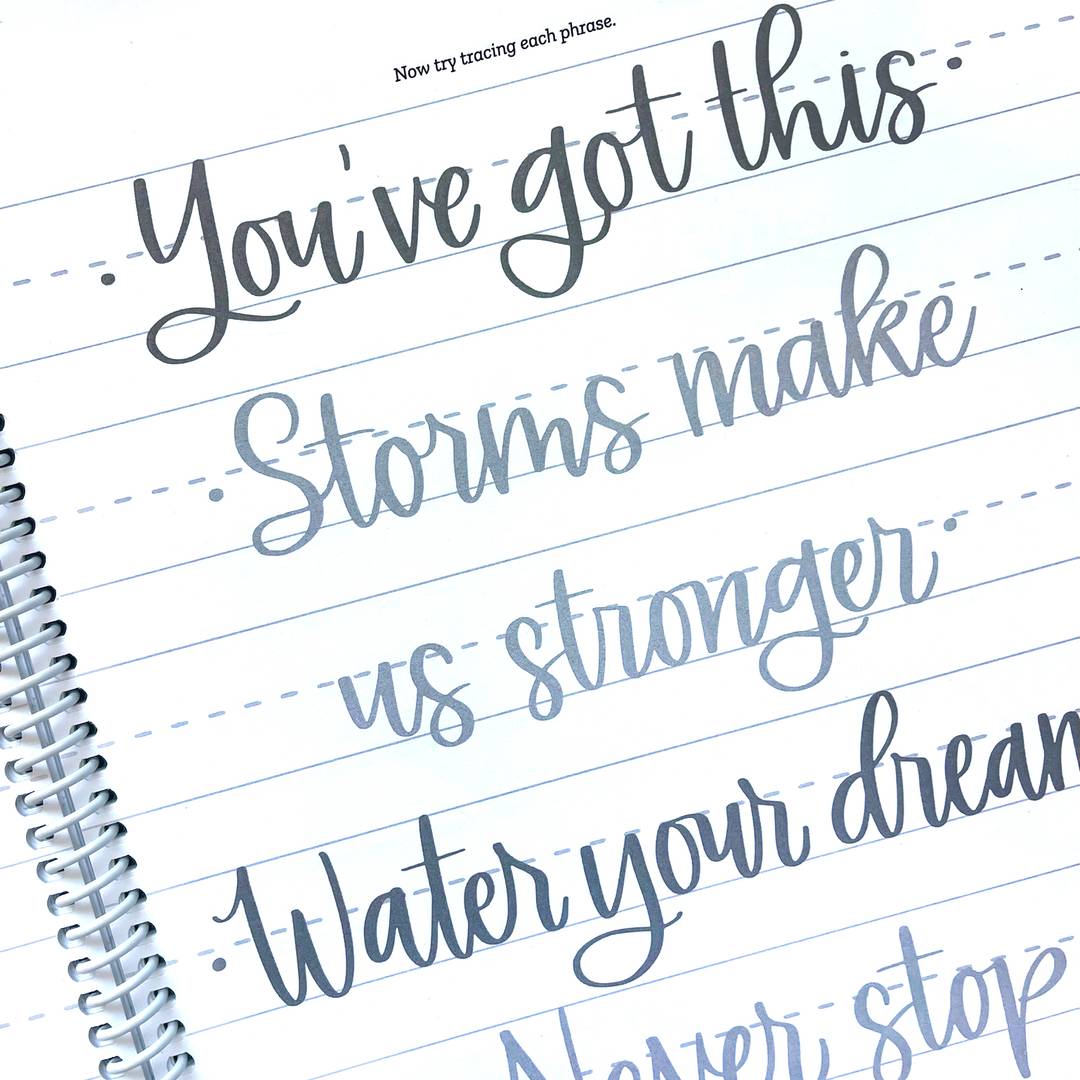 Now try tracing each phrase.
• You've got this •
• Storms make
us stronger •
• Water your dream
Never stop